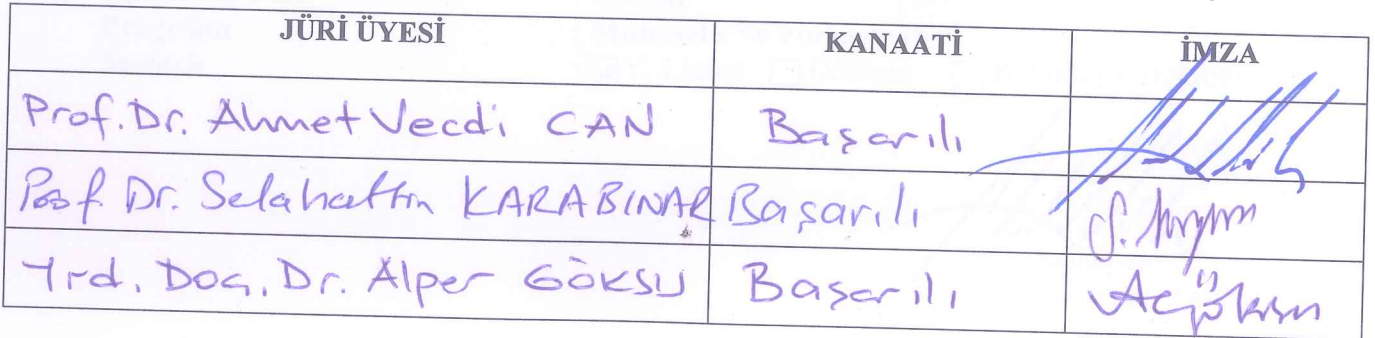 JÜRİ ÜYESİ KANAATİ İMZA
Prof. Dr. Ahmet Vecdi CAN Başarılı
Prof. Dr. Selahattin KARABINAR Başarılı
Yrd. Doç. Dr. Alper GÖKSU Başarılı